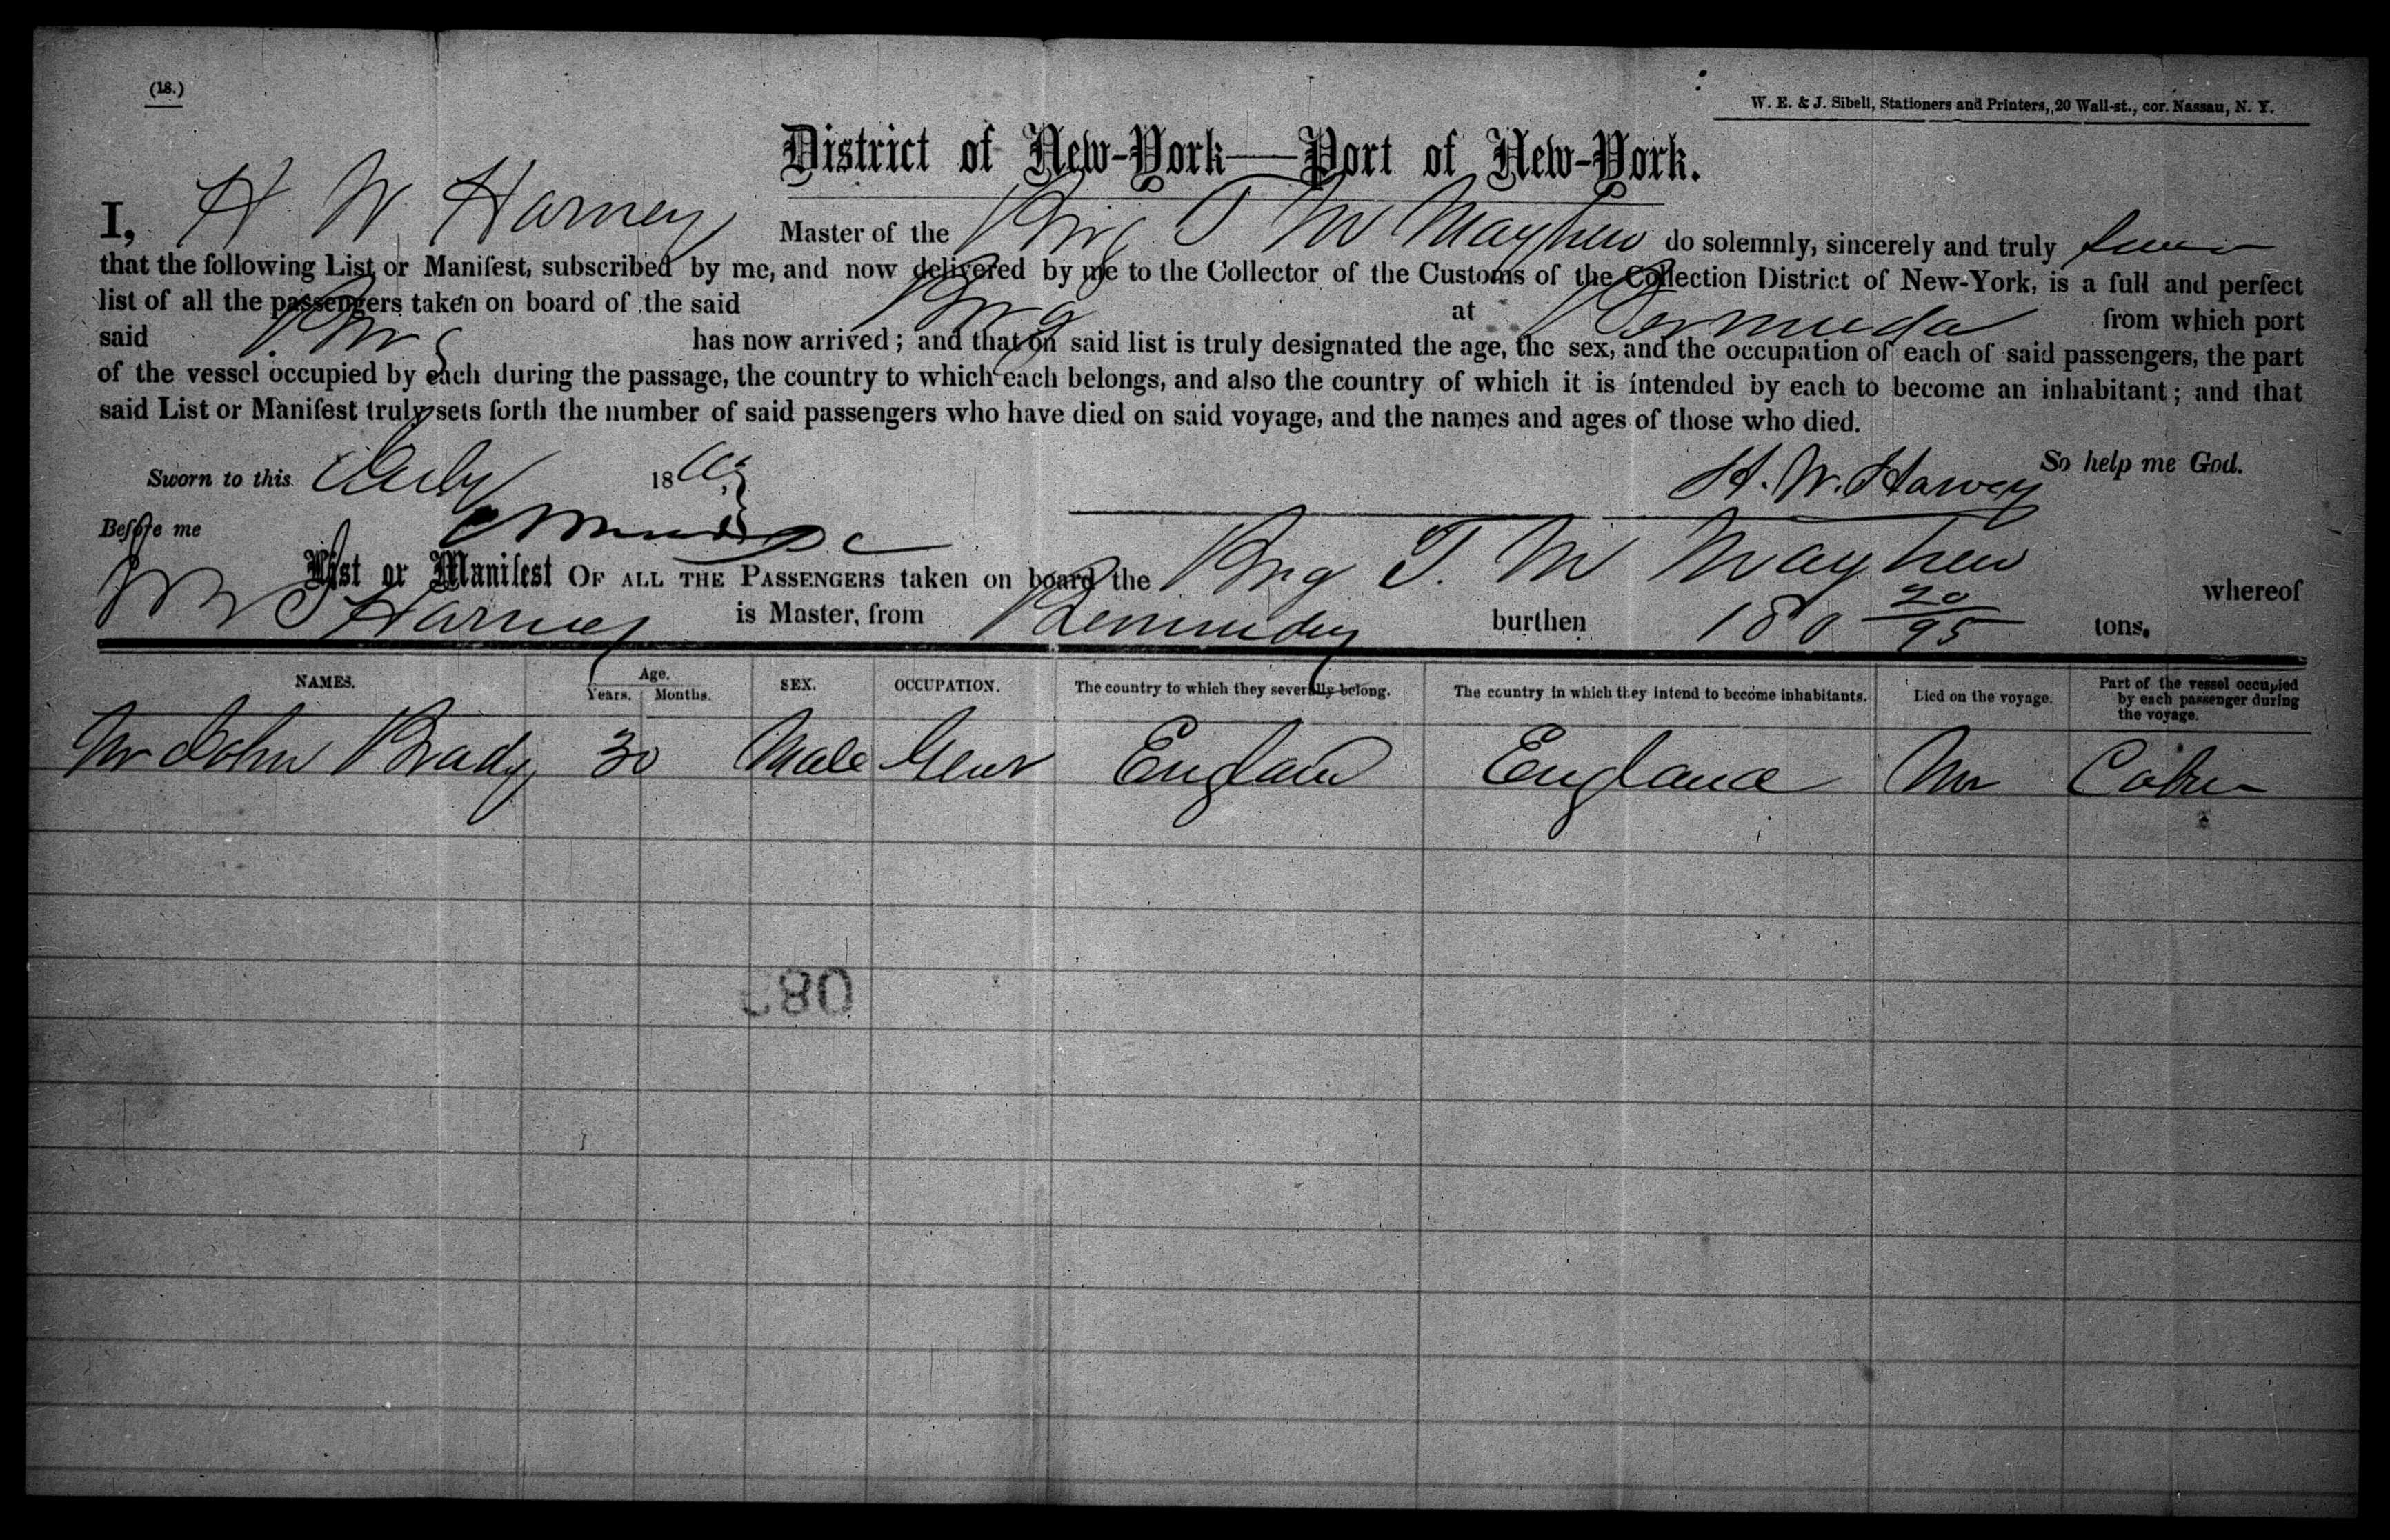 (18.)
W. E. & J. Sibell, Stationers and Printers, 20 Wall-st., cor. Nassau, N. Y.
District of New-York—Port of New-York.
I, H W Harvey Master of the Brig T M Mayhew do solemnly, sincerely and truly swear
that the following List or Manifest, subscribed by me, and now delivered by me to the Collector of the Customs of the Collection District of New-York, is a full and perfect
list of all the passengers taken on board of the said Brig at Bermuda from which port
said Brig has now arrived; and that on said list is truly designated the age, the sex, and the occupation of each of said passengers, the part
of the vessel occupied by each during the passage, the country to which each belongs, and also the country of which it is intended by each to become an inhabitant; and that
said List or Manifest truly sets forth the number of said passengers who have died on said voyage, and the names and ages of those who died.
So help me God.
Sworn to this July 18 H. W. Harvey
Before me
List or Manifest OF ALL THE PASSENGERS taken on board the Brig T. M Mayhew whereof
Harvey is Master, from Bermuda burthen 180 20/95 tons.
NAMES. Age. Years. Months. SEX. OCCUPATION. The country to which they severally belong. The country in which they intend to become inhabitants. Died on the voyage. Part of the vessel occupied by each passenger during the voyage.
Mr John Brady 30 Male Gent England England Cabin
80